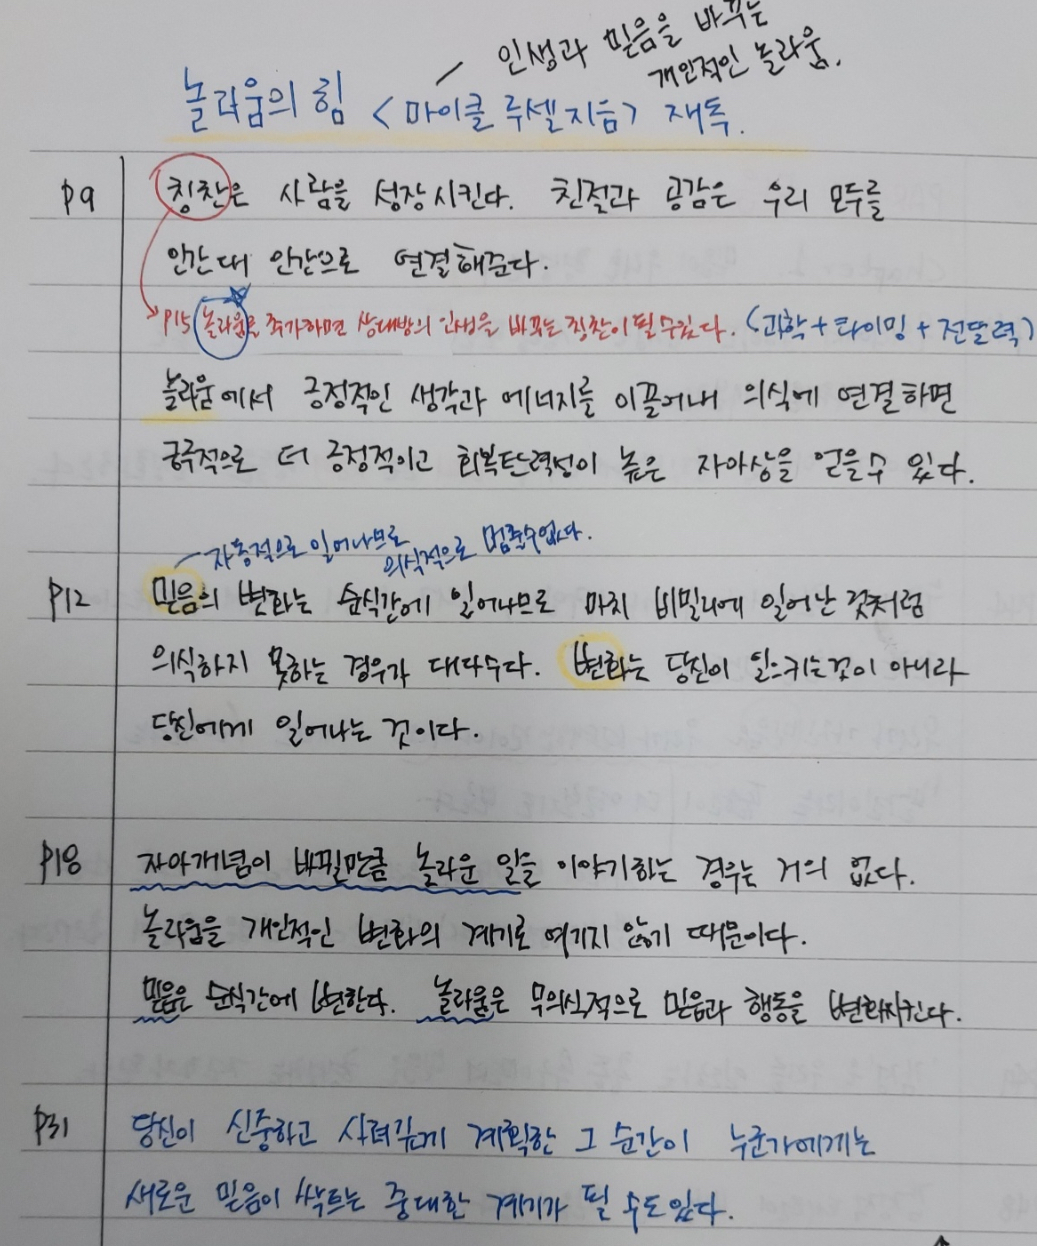 인생과 믿음을 바꾸는
개인적인 놀라움.
놀라움의 힘 <마이클 루셀 지음> 재독.
P9 칭찬은 사람을 성장시킨다. 친절과 공감은 우리 모두를
인간 대 인간으로 연결해준다.
P15 놀라움을 추가하면 상대방의 인생을 바꾸는 칭찬이 될 수 있다. (과학 + 타이밍 + 전달력)
놀라움에서 긍정적인 생각과 에너지를 이끌어내 의식에 연결하면
궁극적으로 더 긍정적이고 회복탄력성이 높은 자아상을 얻을 수 있다.
자동적으로 일어나므로
의식적으로 멈출수없다.
P12 믿음의 변화는 순식간에 일어나므로 마치 비밀리에 일어난 것처럼
의식하지 못하는 경우가 대다수다. 변화는 당신이 일으키는 것이 아니라
당신에게 일어나는 것이다.
P18 자아개념이 바뀔만큼 놀라운 일을 이야기하는 경우는 거의 없다.
놀라움을 개인적인 변화의 계기로 여기지 않기 때문이다.
믿음은 순식간에 변한다. 놀라움은 무의식적으로 믿음과 행동을 변화시킨다.
P31 당신이 신중하고 사려깊게 계획한 그 순간이 누군가에게는
새로운 믿음이 싹트는 중대한 계기가 될 수도 있다.